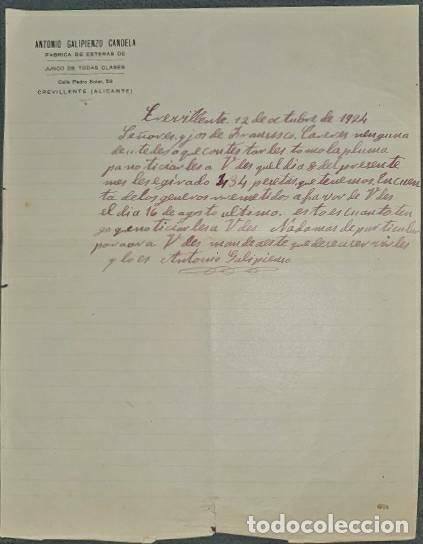 ANTONIO GALIPIENZO CANDELA
FABRICA DE ESTERAS DE
JUNCO DE TODAS CLASES
Calle Pedro Soler, 23
CREVILLENTE (ALICANTE)
Crevillente 12 de octubre de 1924
Señores, yjos de Fransisco, Canovas ninguna
deustedes aque contestarles tomo la pluma
pa noticiarles a Vdes quel dia 8 del presente
mes les e girado 434 pesetas, que tenemos, En cuenta
de los generos rremetidos a fabor de Vdes
el dia 16 de agosto ultimo. esto es cuanto ten
go que noticiarles a Vdes Nada mas de particular
por aora Vdes manden a este que deceа servirles
y lo es Antonio Galipienso
todocoleccion.net